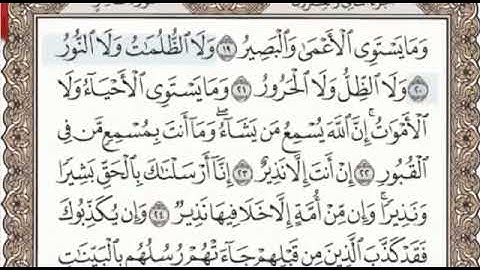 وَمَا يَسْتَوِى ٱلْأَعْمَىٰ وَٱلْبَصِيرُ ١٩ وَلَا ٱلظُّلُمَـٰتُ وَلَا ٱلنُّورُ
٢٠ وَلَا ٱلظِّلُّ وَلَا ٱلْحَرُورُ ٢١ وَمَا يَسْتَوِى ٱلْأَحْيَآءُ وَلَا
ٱلْأَمْوَٰتُ ۚ إِنَّ ٱللَّهَ يُسْمِعُ مَن يَشَآءُ ۖ وَمَآ أَنتَ بِمُسْمِعٍ مَّن فِى
ٱلْقُبُورِ ٢٢ إِنْ أَنتَ إِلَّا نَذِيرٌ ٢٣ إِنَّآ أَرْسَلْنَـٰكَ بِٱلْحَقِّ بَشِيرًا
وَنَذِيرًا ۚ وَإِن مِّنْ أُمَّةٍ إِلَّا خَلَا فِيهَا نَذِيرٌ ٢٤ وَإِن يُكَذِّبُوكَ
فَقَدْ كَذَّبَ ٱلَّذِينَ مِن قَبْلِهِمْ جَآءَتْهُمْ رُسُلُهُم بِٱلْبَيِّنَـٰتِ